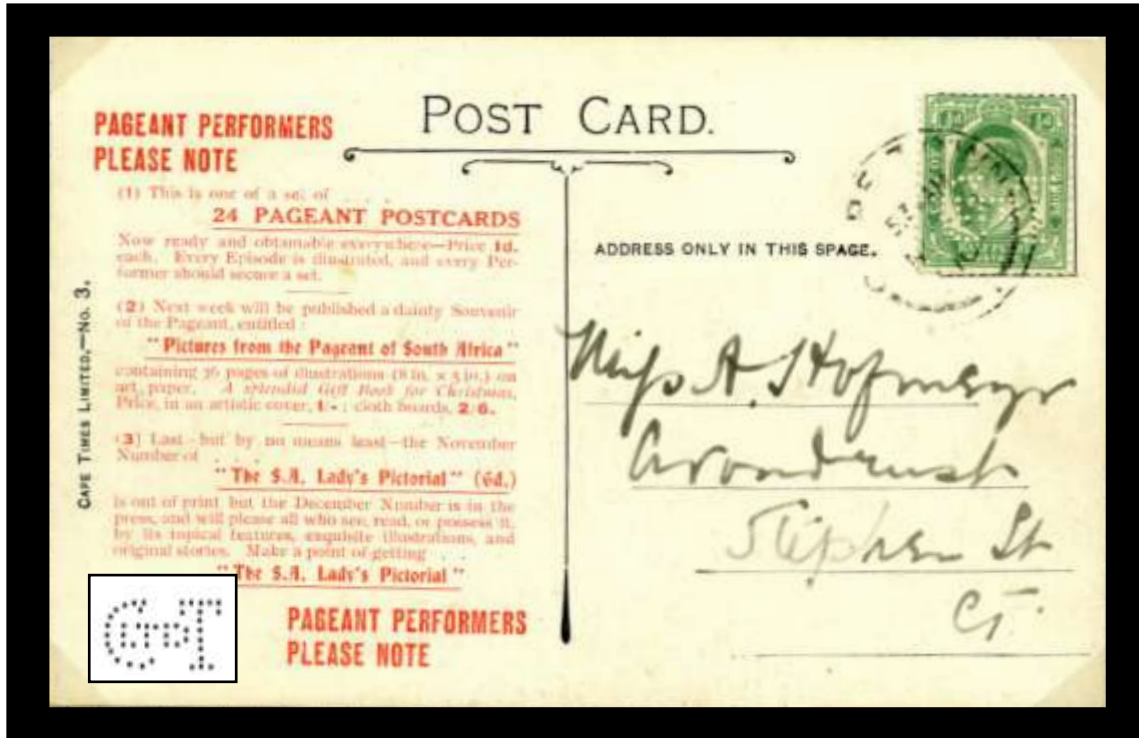 POST CARD.
PAGEANT PERFORMERS
PLEASE NOTE
(1) This is one of a set of . . . .
24 PAGEANT POSTCARDS
Now ready and obtainable everywhere—Price 1d.
each. Every Episode is illustrated, and every Per-
former should secure a set.
(2) Next week will be published a dainty Souvenir
of the Pageant, entitled :
"Pictures from the Pageant of South Africa"
containing 36 pages of illustrations (8 in. × 5 in.) on
art paper. A splendid Gift Book for Christmas,
Price, in an artistic cover, 1/-; cloth boards, 2/6.
(3) Last—but by no means least—the November
Number of . . .
"The S.A. Lady's Pictorial" (6d.)
is out of print but the December Number is in the
press, and will please all who see, read, or possess it,
by its topical features, exquisite illustrations, and
original stories. Make a point of getting . .
"The S.A. Lady's Pictorial"
PAGEANT PERFORMERS
PLEASE NOTE
CAPE TIMES LIMITED.—No. 3.
ADDRESS ONLY IN THIS SPACE.
Miss A. Hofmeyr
Avondrust
Stephen St
CT.